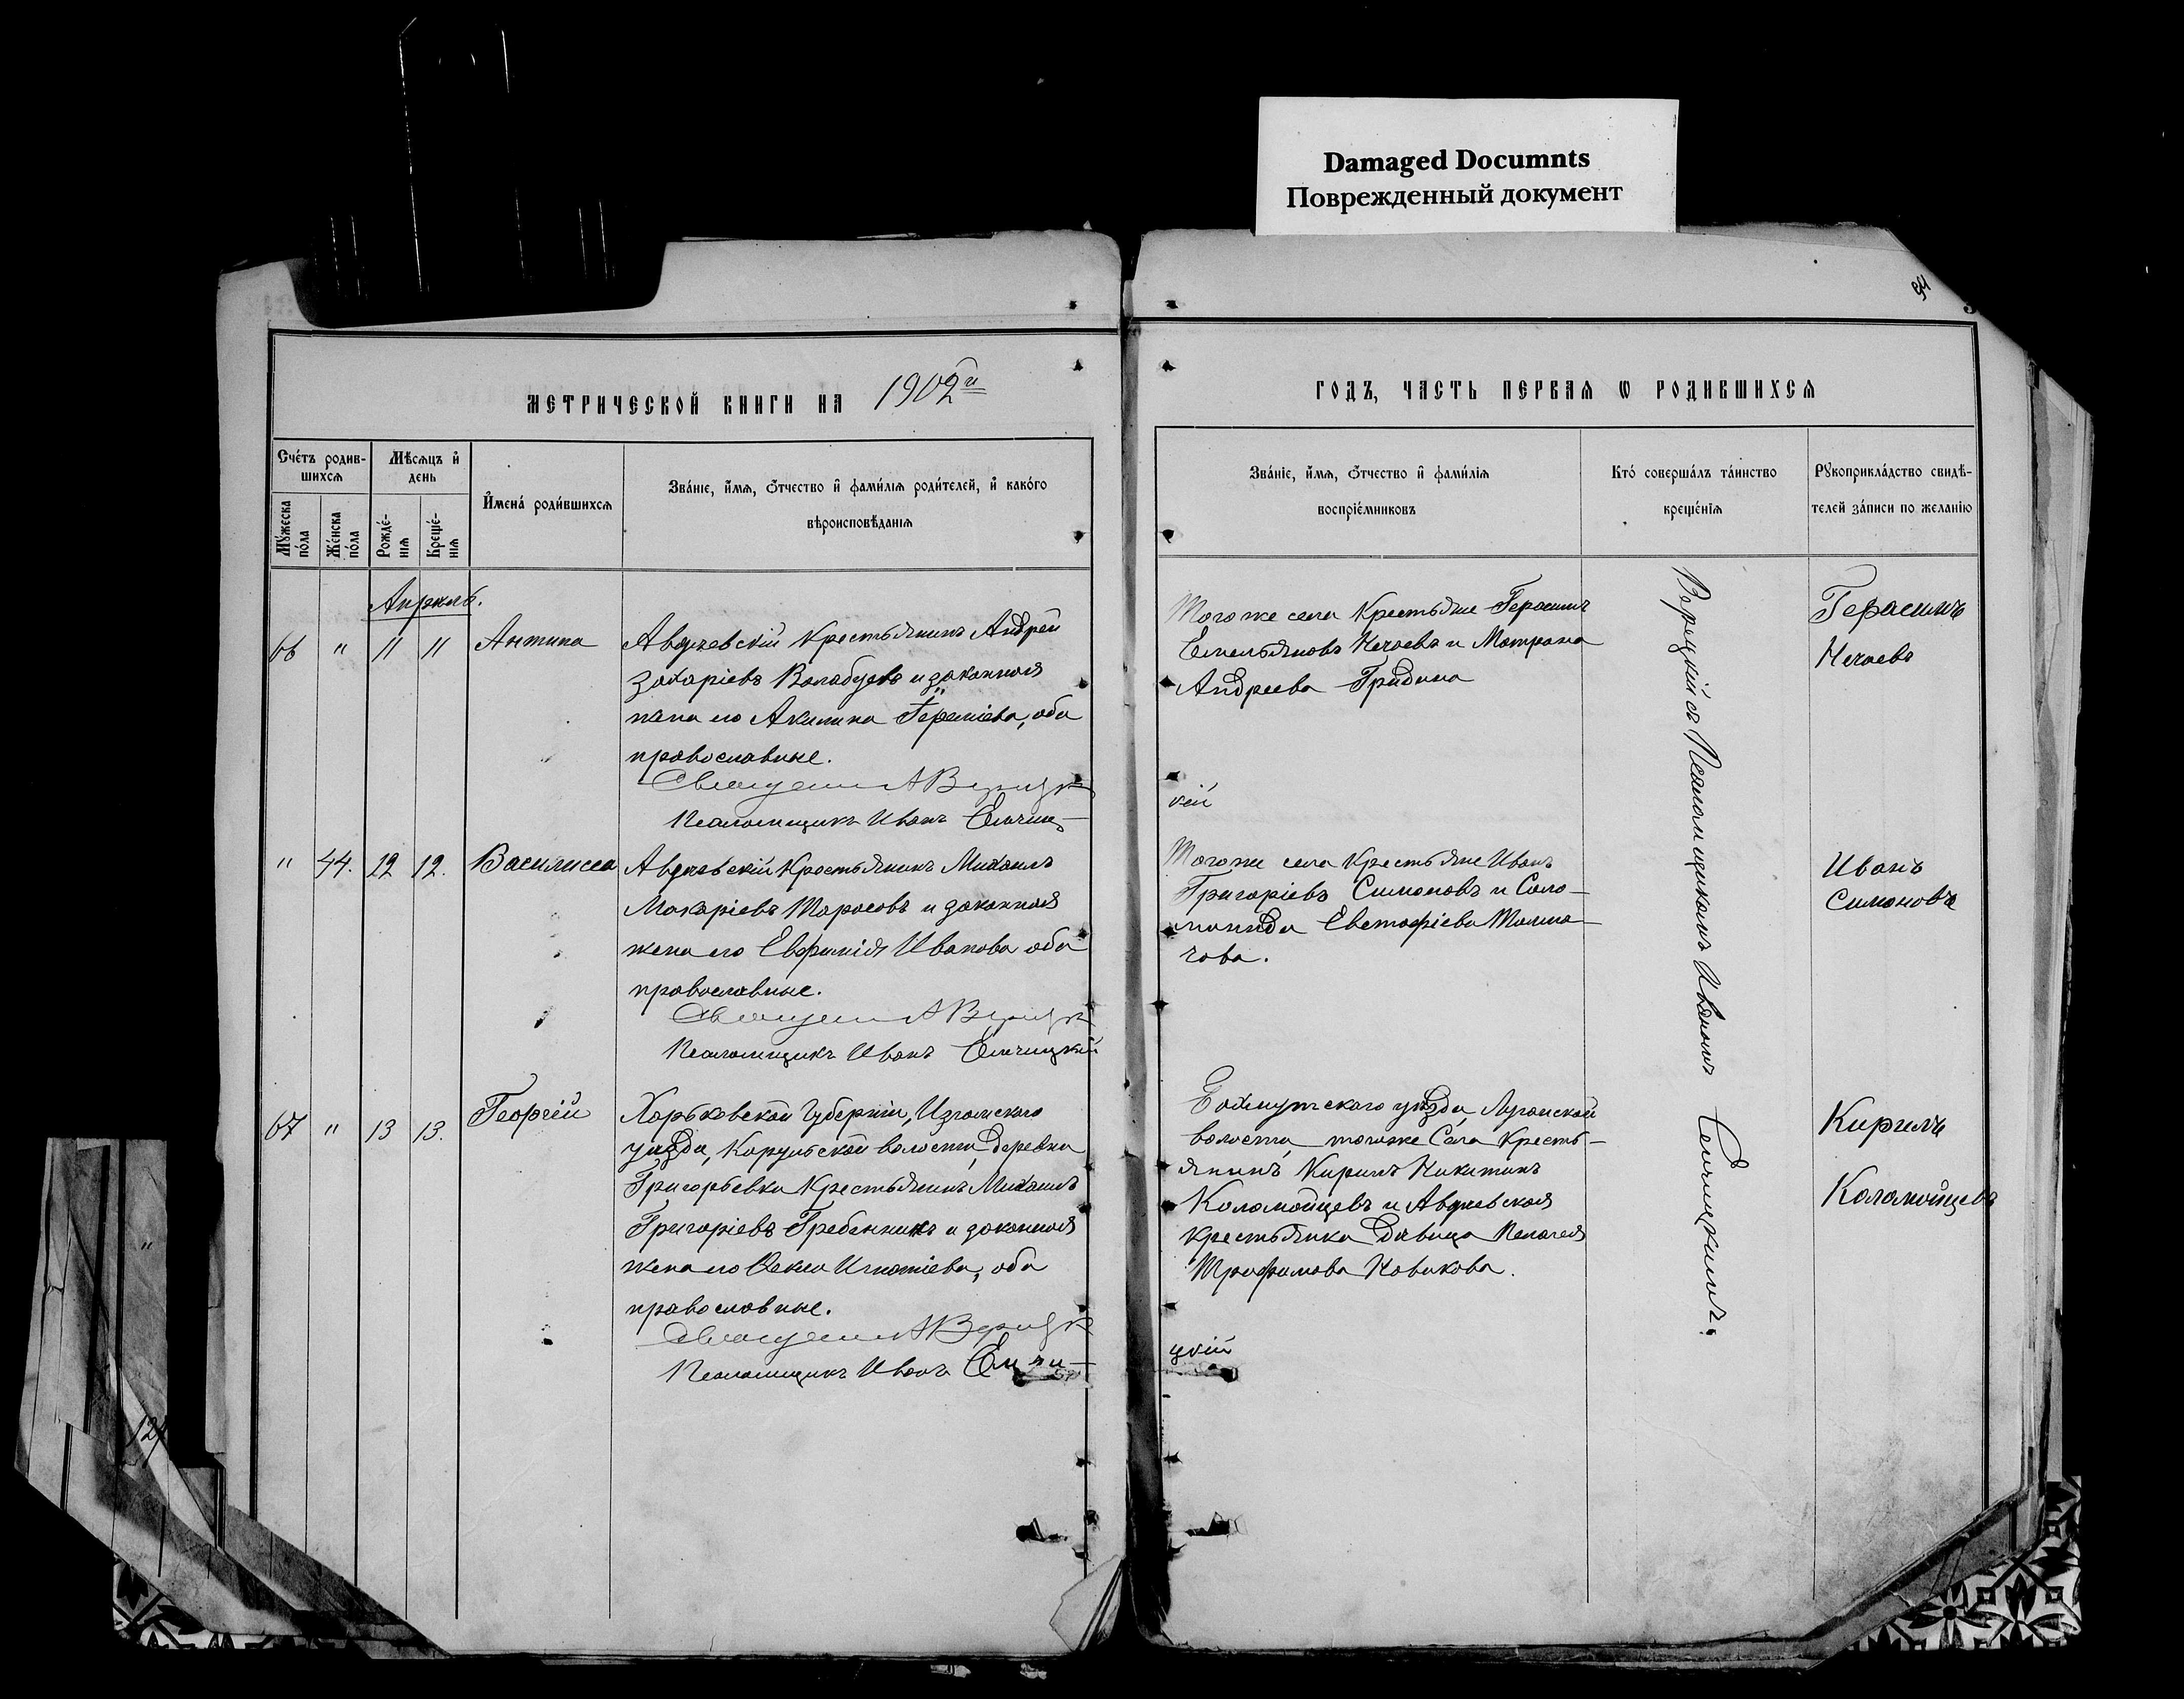 Damaged Documnts
Поврежденный документ
94
МЕТРИЧЕСКОЙ КНИГИ НА 1902й
ГОДЪ, ЧАСТЬ ПЕРВАЯ Ѡ РОДИВШИХСЯ
Счетъ родив-
шихся
Мужеска
пола
Женска
пола
Мѣсяцъ и
день
Рожде-
нія
Креще-
нія
Имена родившихся
Званіе, имя, отчество и фамилія родителей, и какого
вѣроисповѣданія
Званіе, имя, отчество и фамилія
воспріемниковъ
Кто совершалъ таинство
крещенія
Рукоприкладство свидѣ-
телей записи по желанію
Апрѣль.
66 " 11 11 Антипа
Авдѣевскій крестьянинъ Андрей
Захаріевъ Балабуевъ и законная
жена его Акилина, оба
православные.
Псаломщикъ Иванъ Ельчиц-
кій
Того же села Крестьяне Герасимъ
Емельяновъ Нечаевъ и Матрона
Андреева Гридина
Герасимъ
Нечаевъ
" 44. 12 12. Василисса
Авдѣевскій Крестьянинъ Михаилъ
Макаріевъ Тарасовъ и законная
жена его Евфимія Иванова оба
православные.
Псаломщикъ Иванъ Ельчицкій
Того же села Крестьяне Иванъ
Григоріевъ Симоновъ и Соло-
монида Евстафіева Толма-
чова.
Иванъ
Симоновъ
67 " 13 13. Георгій
Харьковской Губерніи, Изюмскаго
уѣзда, волости, деревни
Григорьевки Крестьянинъ Михаилъ
Григоріевъ Гребенникъ и законная
жена его Ѳекла Игнатіева, оба
православные.
Псаломщикъ Иванъ Ельчи-
цкій
Бахмутскаго уѣзда, Луганской
волости, тогоже Села Кресть-
янинъ Кирилъ Никитинъ
Коломойцевъ и Авдѣевская
крестьянка дѣвица Пелагея
Трофимова Новикова.
Кирилъ
Коломойцевъ
съ Псаломщикомъ Иваномъ Ельчицкимъ.